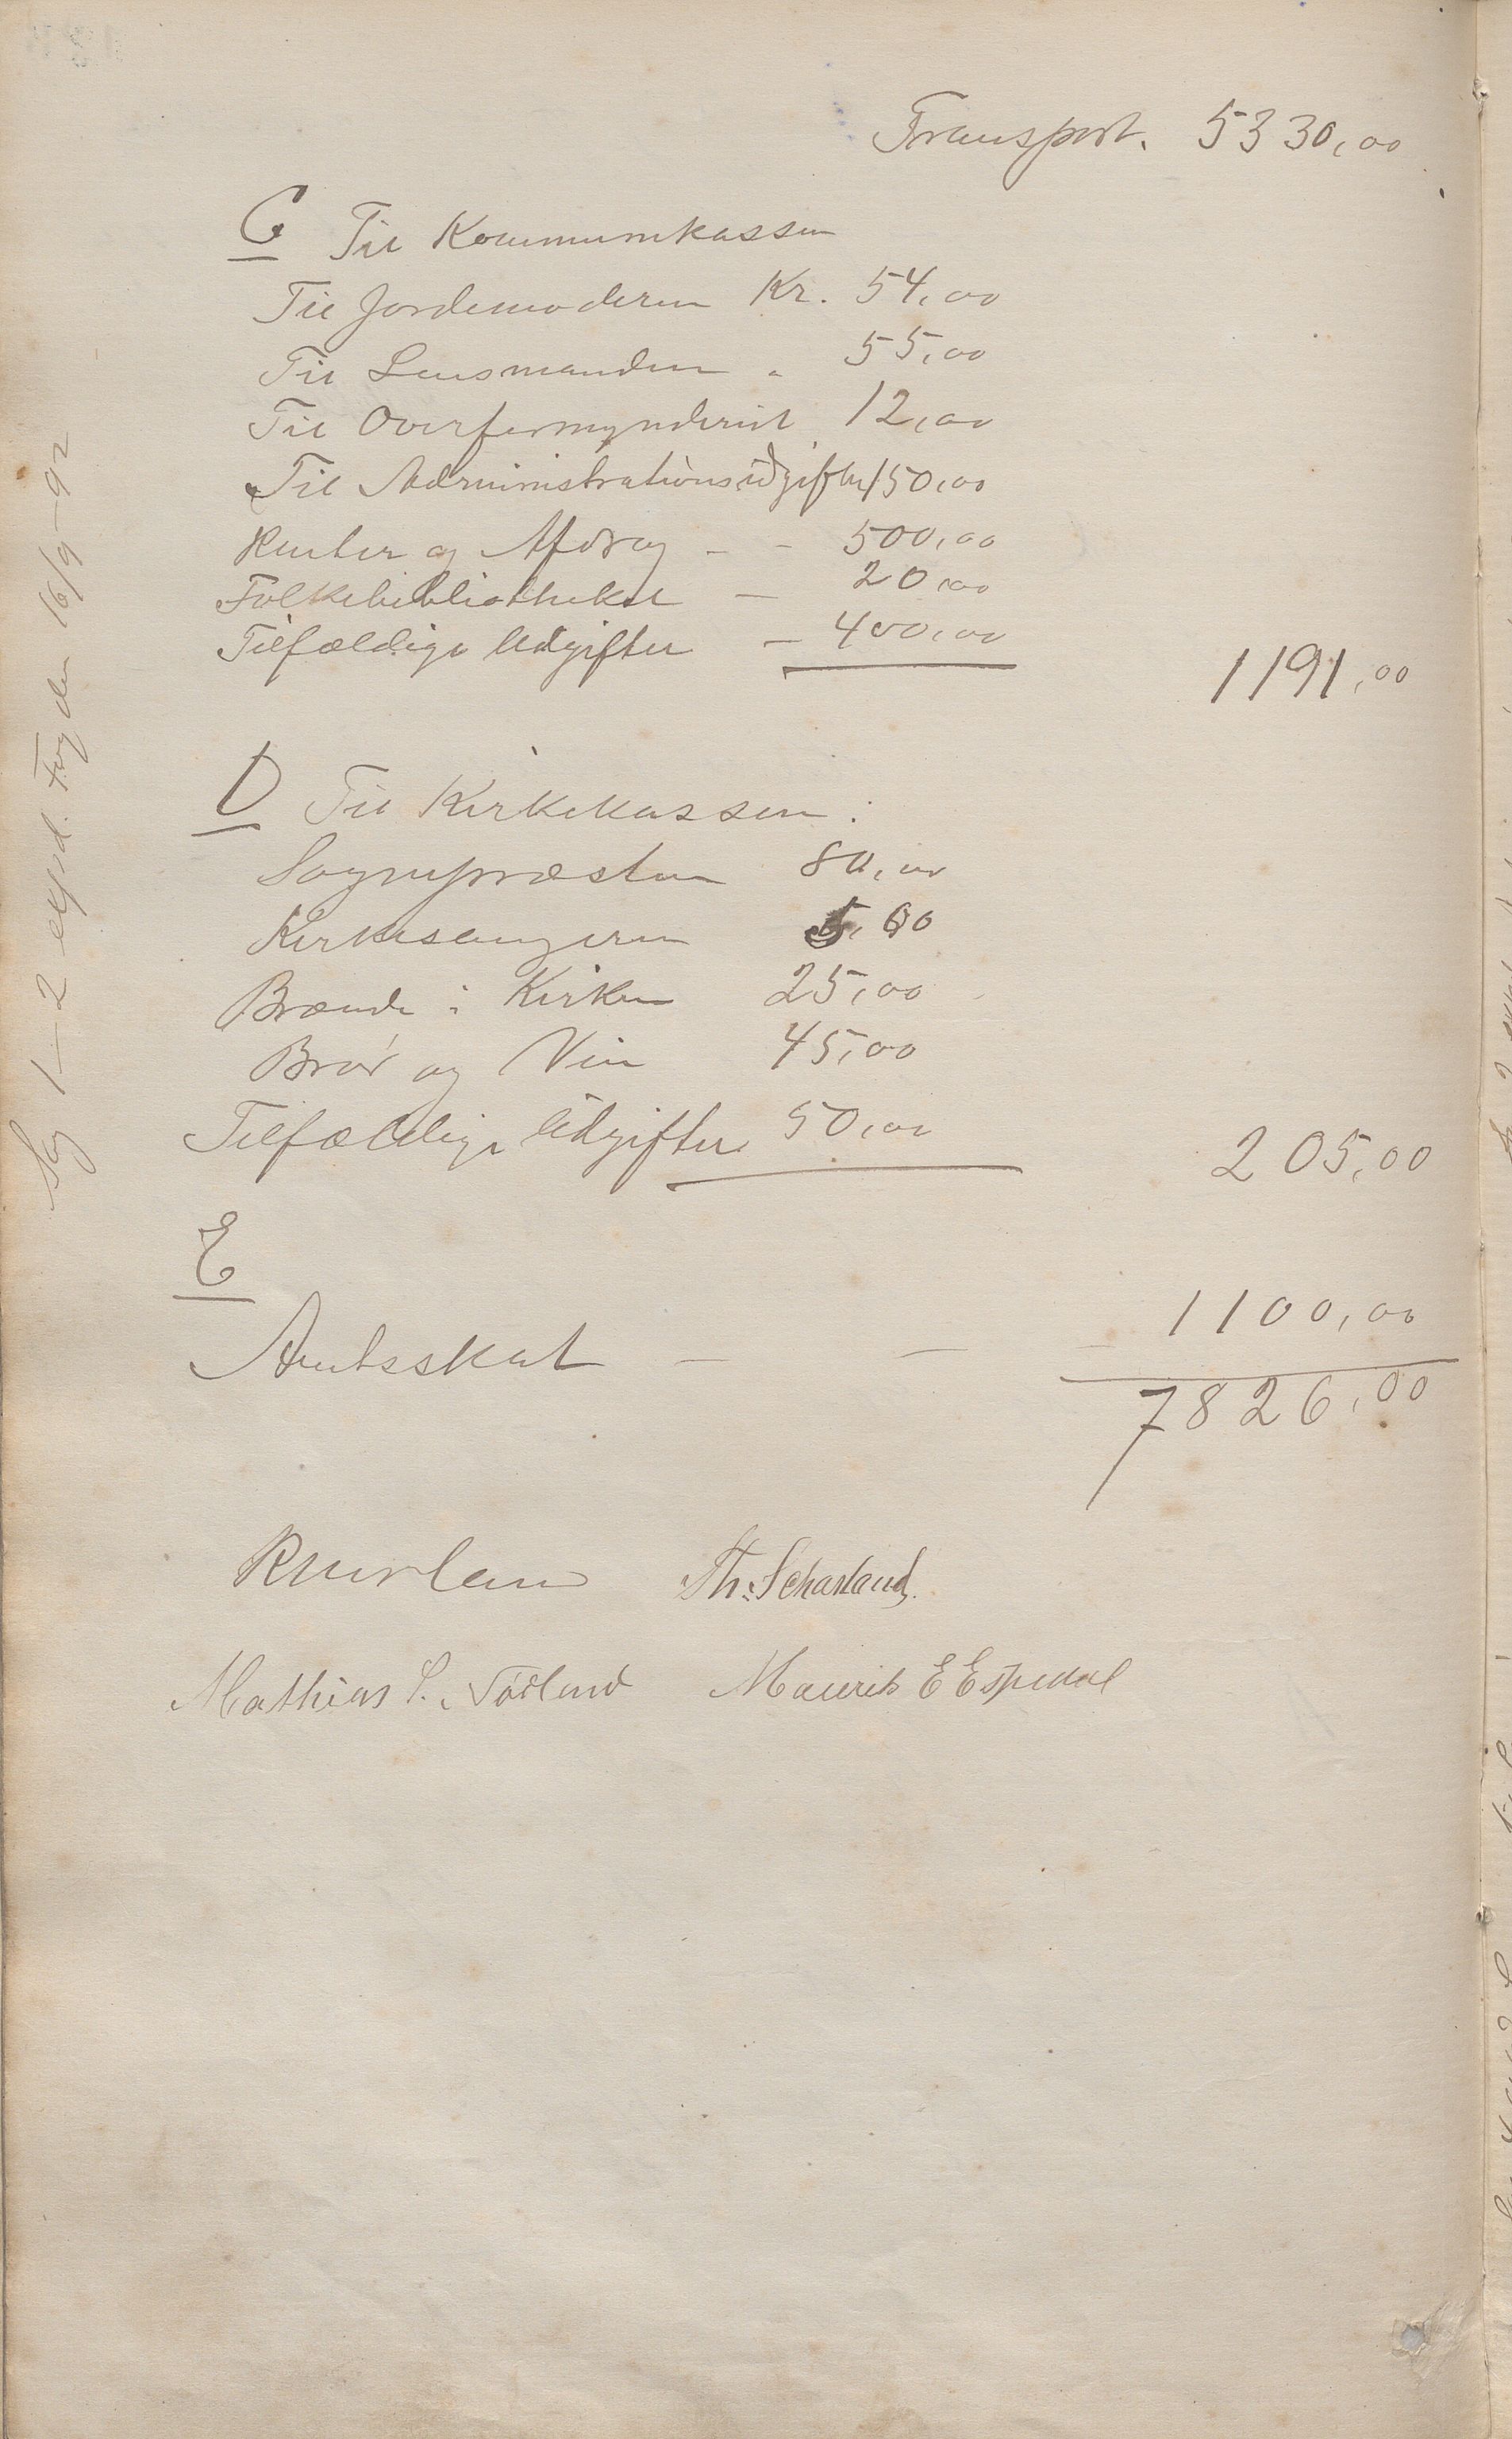 Transport. 5330,00
C Til Kommunekassen
Til Jordemoderen Kr. 54,00
Til Lensmanden " 55,00
Til Overformynderiet 12,00
Til Administrationsudgifter 150,00
Renter og Afdrag - - 500,00
Folkebibliotheket - 20,00
Tilfældige Udgifter - 400,00
1191,00
D Til Kirkekassen:
Sognepræsten 80,00
Kirkesangeren 5,00
Brænde i Kirken 25,00
Brød og Vin 45,00
Tilfældige Udgifter 50,00
205,00
E
1100,00
Amtsskat - - -
7826,00
Th. Scharland.
Mathias S. Tødland Maurits E Espedal
Sag 1-2 exp.d. Fogden 16/9-92